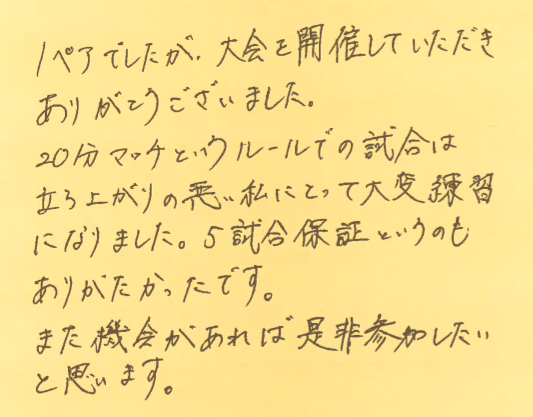 1ペアでしたが、大会を開催していただき
ありがとうございました。
20分マッチというルールでの試合は
立ち上がりの悪い私にとって大変練習
になりました。5試合保証というのも
ありがたかったです。
また機会があれば是非参加したい
と思います。